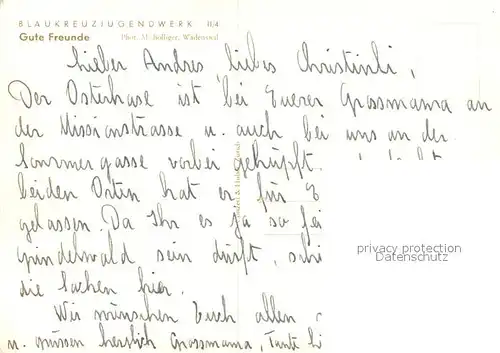 BLAUKREUZJUGENDWERK II/4
Gute Freunde Phot. M. Bolliger, Wädenswil
Lieber Andres liebes Christinli,
Der Osterhase ist bei Euerer Grossmama an
der Missionstrasse u. auch bei uns an der
Sommergasse vorbei gehüpft.
beiden Orten hat er für E
gelassen. Da Ihr es ja so fei
Grindelwald sein dürft, schi
die Sachen hier.
Wir wünschen Euch allen
u. grüssen herzlich Grossmama, Tante Li
privacy protection
Datenschutz